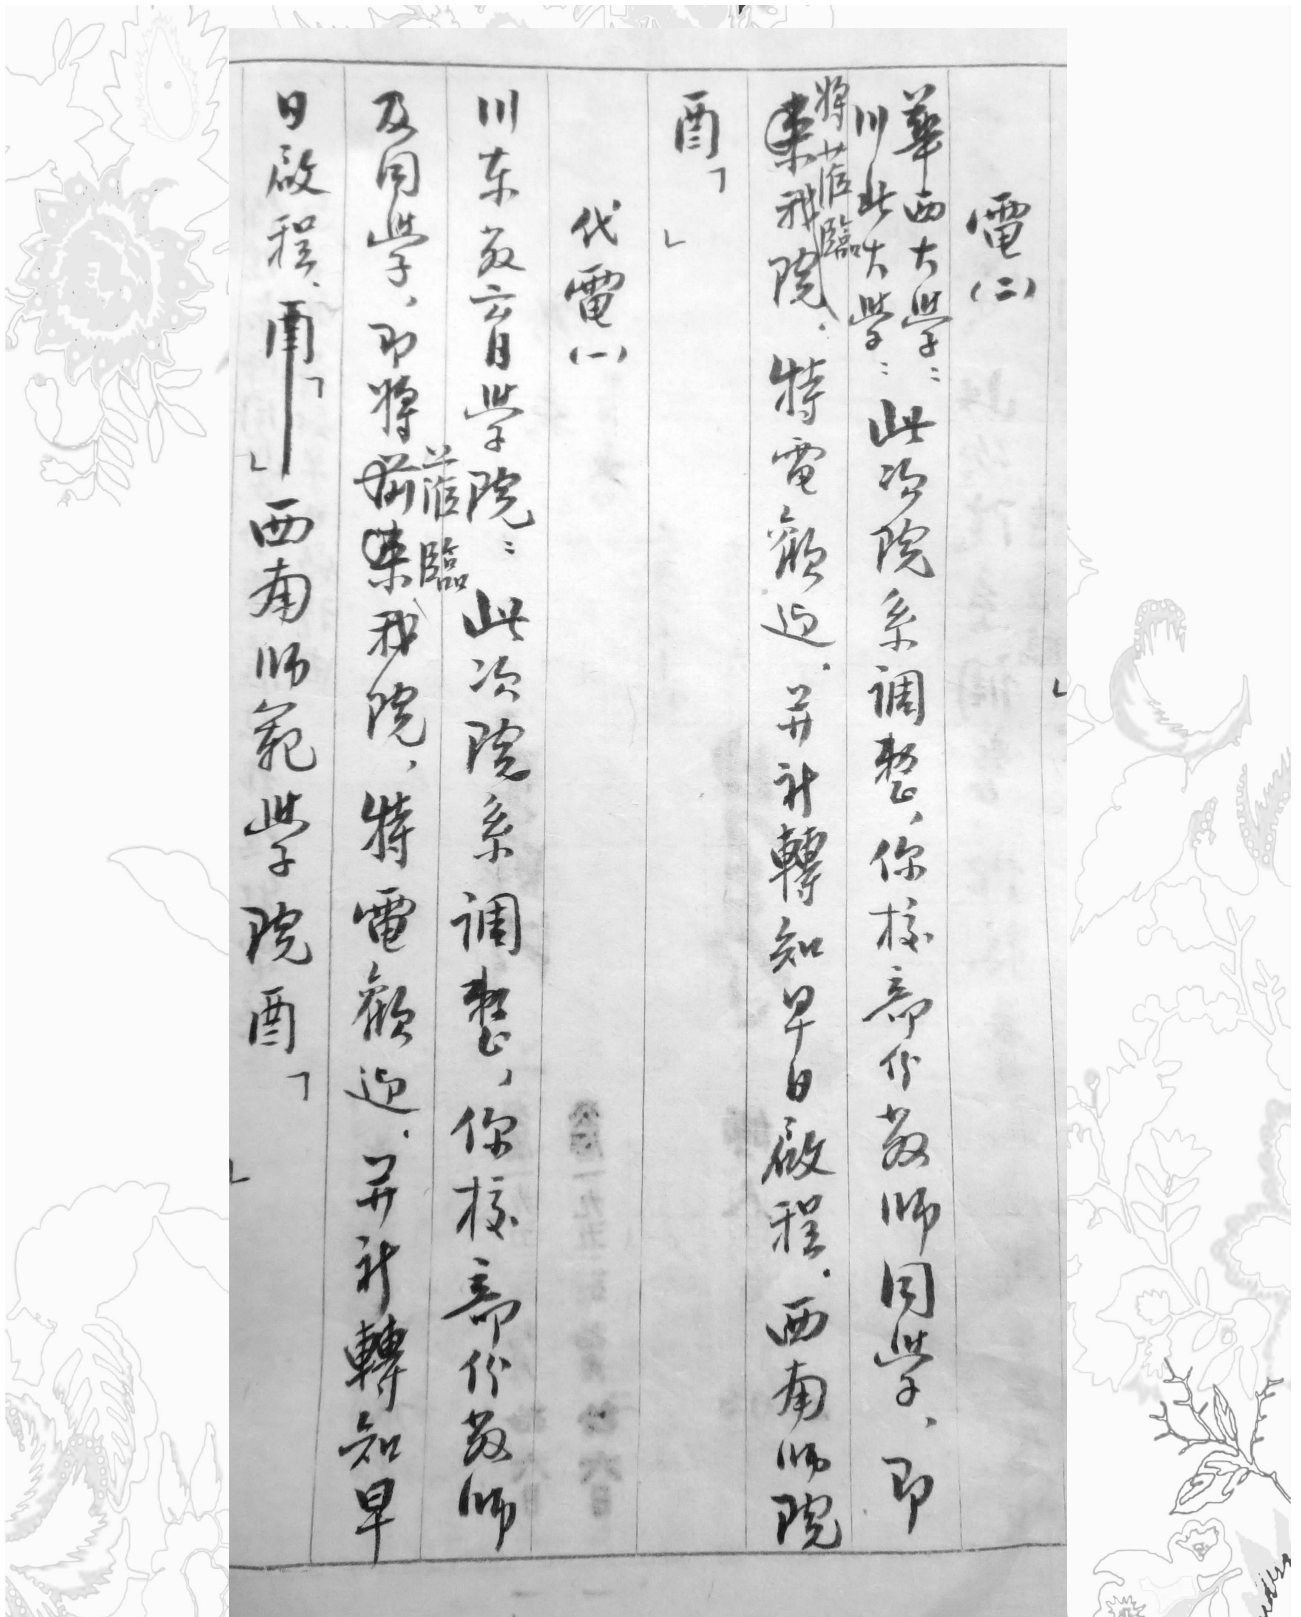 電(二)
華西大學：
川北大學：此次院系調整，你校部份教師同學，即
將蒞臨
來我院．特電歡迎．并計轉知早日啟程．西南師院
酉」
代電(一)
川东教育學院：此次院系調整，你校部份教師
及同學，即將前來我院，特電歡迎．并計轉知早
蒞臨
日啟程．酉」西南师範學院酉」